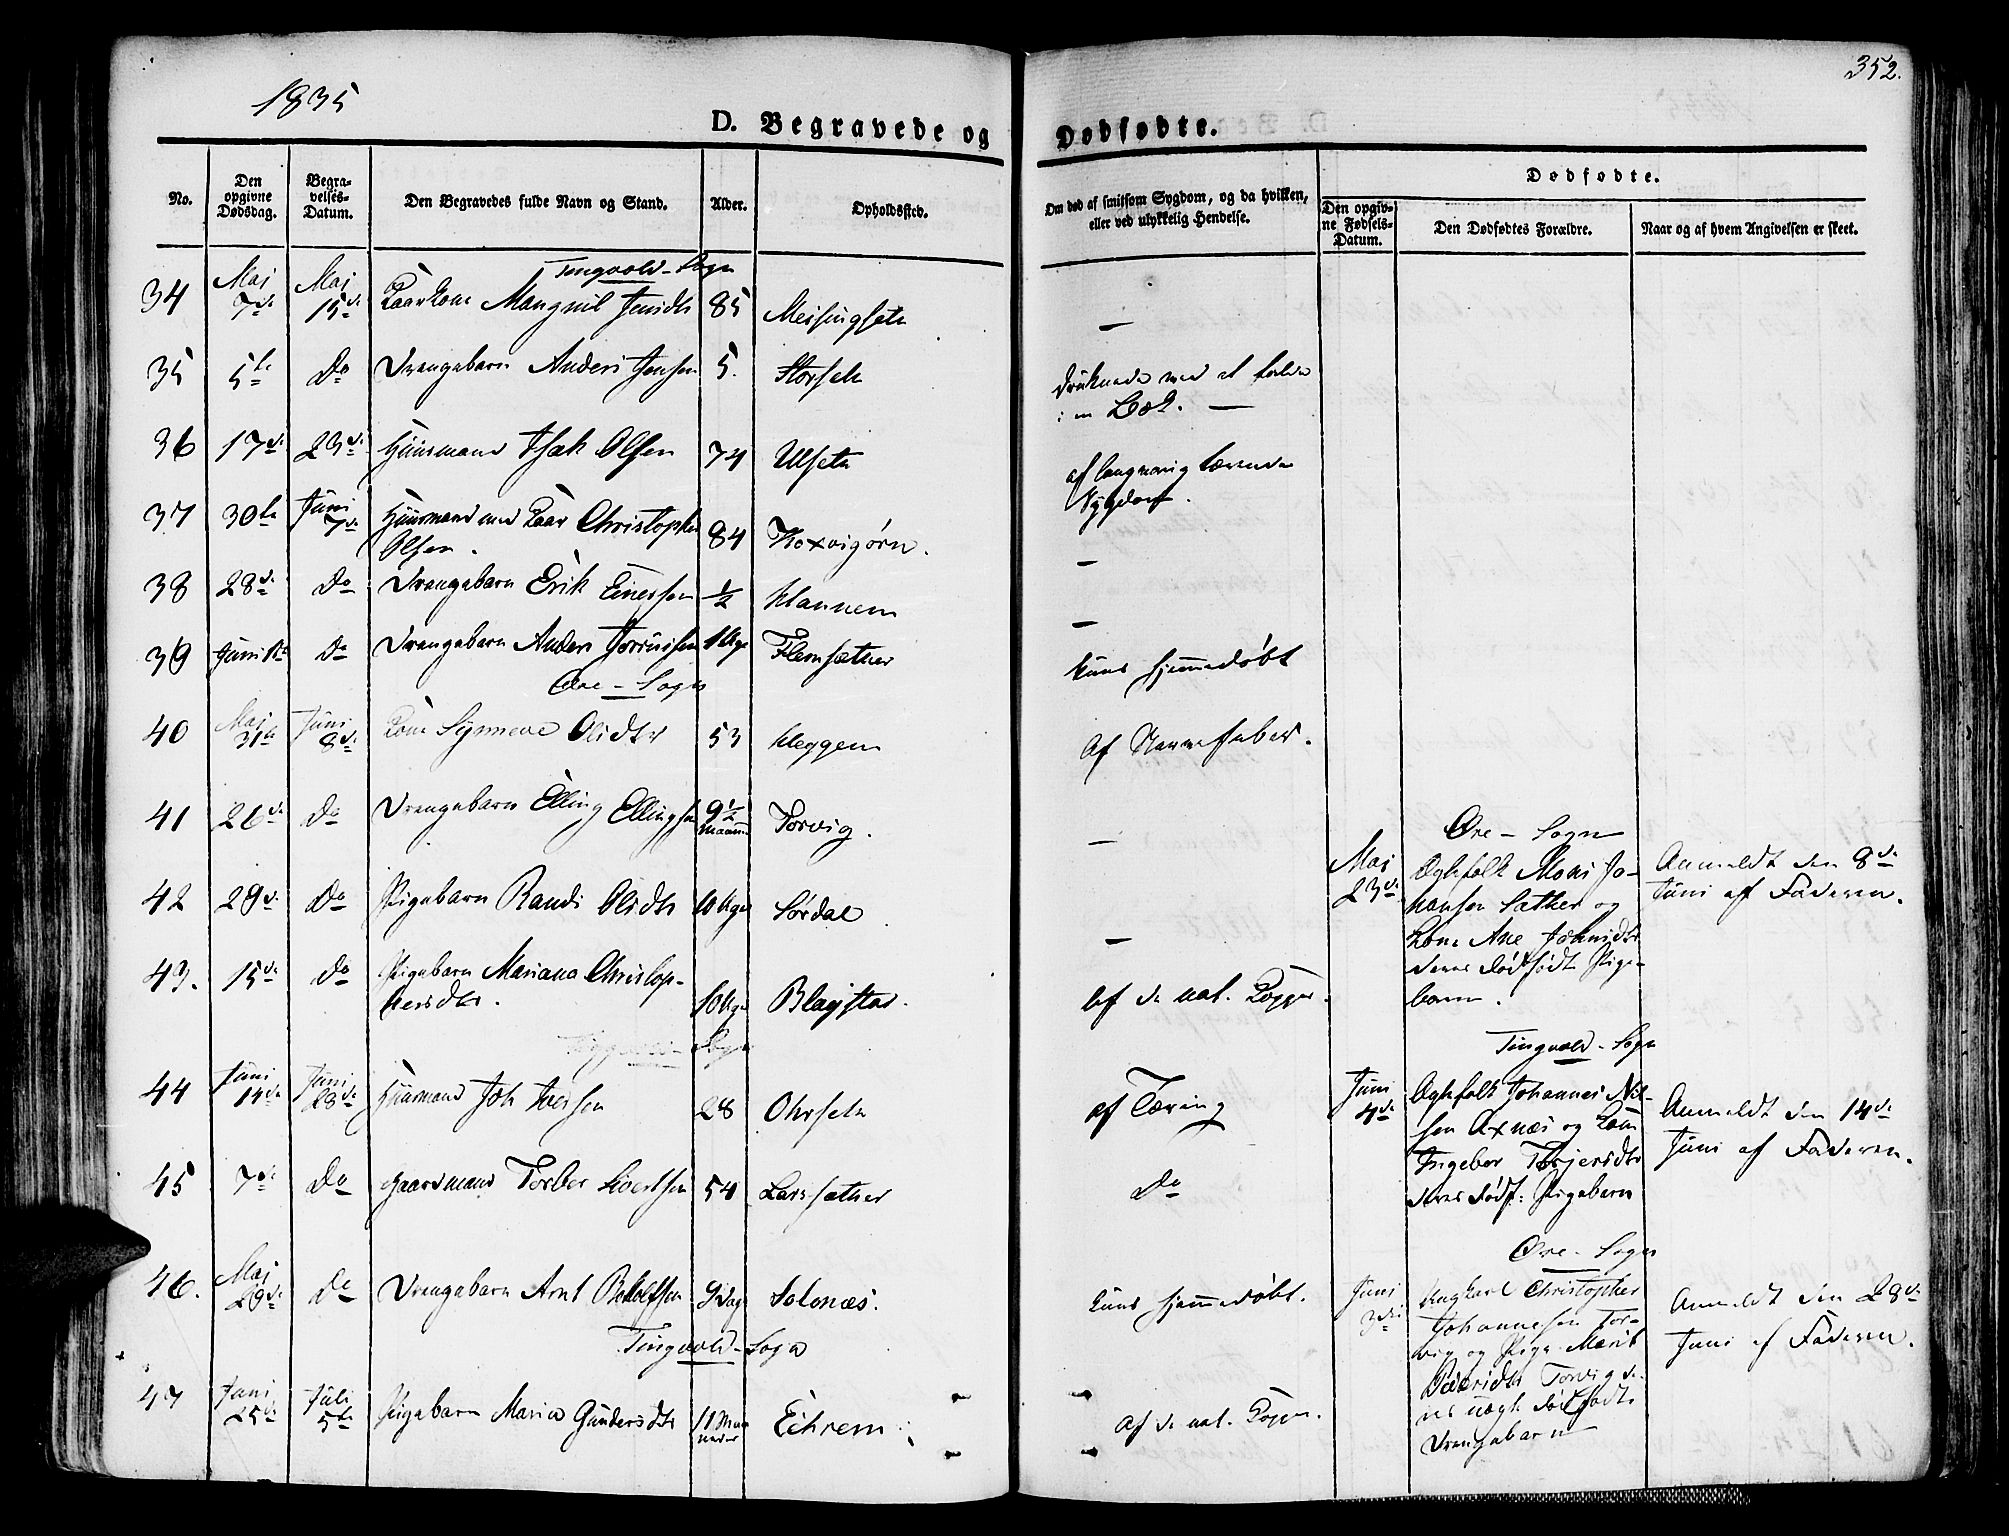 1835
352.
D. Begravede og Dødfødte.
No.
Den opgivne Dødsdag.
Begravelses-Datum.
Den Begravedes fulde Navn og Stand.
Alder.
Opholdssted.
Om død af smitsom Sygdom, og da hvilken, eller ved ulykkelig Hendelse.
Dødfødte.
Den opgivne Fødsels-Datum.
Den Dødfødtes Forældre.
Naar og af hvem Angivelsen er skeet.
Tingvold-Sogn
34 Maj 7de Maj 15de Magnil Jensdtr 85 Meisingsetn —
35 5te Do Drengebarn Anders Jensen 5. Storsetn druknede ved at falde
i en Bæk. —
36 17de 23de Huusmand Isak Olsen 74 Ulsetn af langvarig tærende
Sygdom.
37 30te Juni 7de Huusmand med Christopher
Olsen. 84 Koxvigørn. —
38 28de Do Drengebarn Erik Einersen 1/2 Hannem —
39 Juni 1te Do Drengebarn Anders 1 Uge Flemsæther kuns hjemmedøbt
Øre-Sogn
40 Maj 31te Juni 8de Kone Synneve Olsdtr 53 Heggem af Nervefeber.
41 26de Do Drengebarn Elling Ellingsen 9 1/2 Torvig. —
42 29de Do Pigebarn Randi Olsdtr 10 Uger Sørdal —
43. 15de Do Pigebarn Mariana Christop-
hersdtr. 10 Uger af de nat. Kopper.
Tingvold-Sogn
44 Juni 14de Juni 28de Huusmand Joh Iversen 28 Ohrsetn af Tæring
45 7de Do Gaardmand Torber Sivertsen 54 Larssæther Do
46. Maj 29de Do Drengebarn Arnt 9 Dage Solenæs. kuns hjemmedøbt.
Tingvold-Sogn
47 Juni 25de Juli 5te Pigebarn Maria Gundersdtr 11 Maaneder Eihrem af de nat. Kopper.
Øre-Sogn
Maj 23de Ægtefolk Mons Jo-
hansen Sæther og
Kone Ane Johnsdtr
deres dødfødt Pige-
barn.
Anmeldt den 8de
Juni af Faderen.
Tingvold-Sogn
Juni 4de Ægtefolk Johannes Nil-
sen Axnæs og Kone
Ingebor Torjersdtr
deres dødf: Pigebarn
Anmeldt den 14de
Juni af Faderen.
Øre-Sogn
Juni 3die Ungkarl Christopher
Johannesen Tor-
vig og Pige Marit
Pedersdtr Torvig de-
res uægt dødfødte
Drengebarn
Anmeldt den 28de
Juni af Faderen.